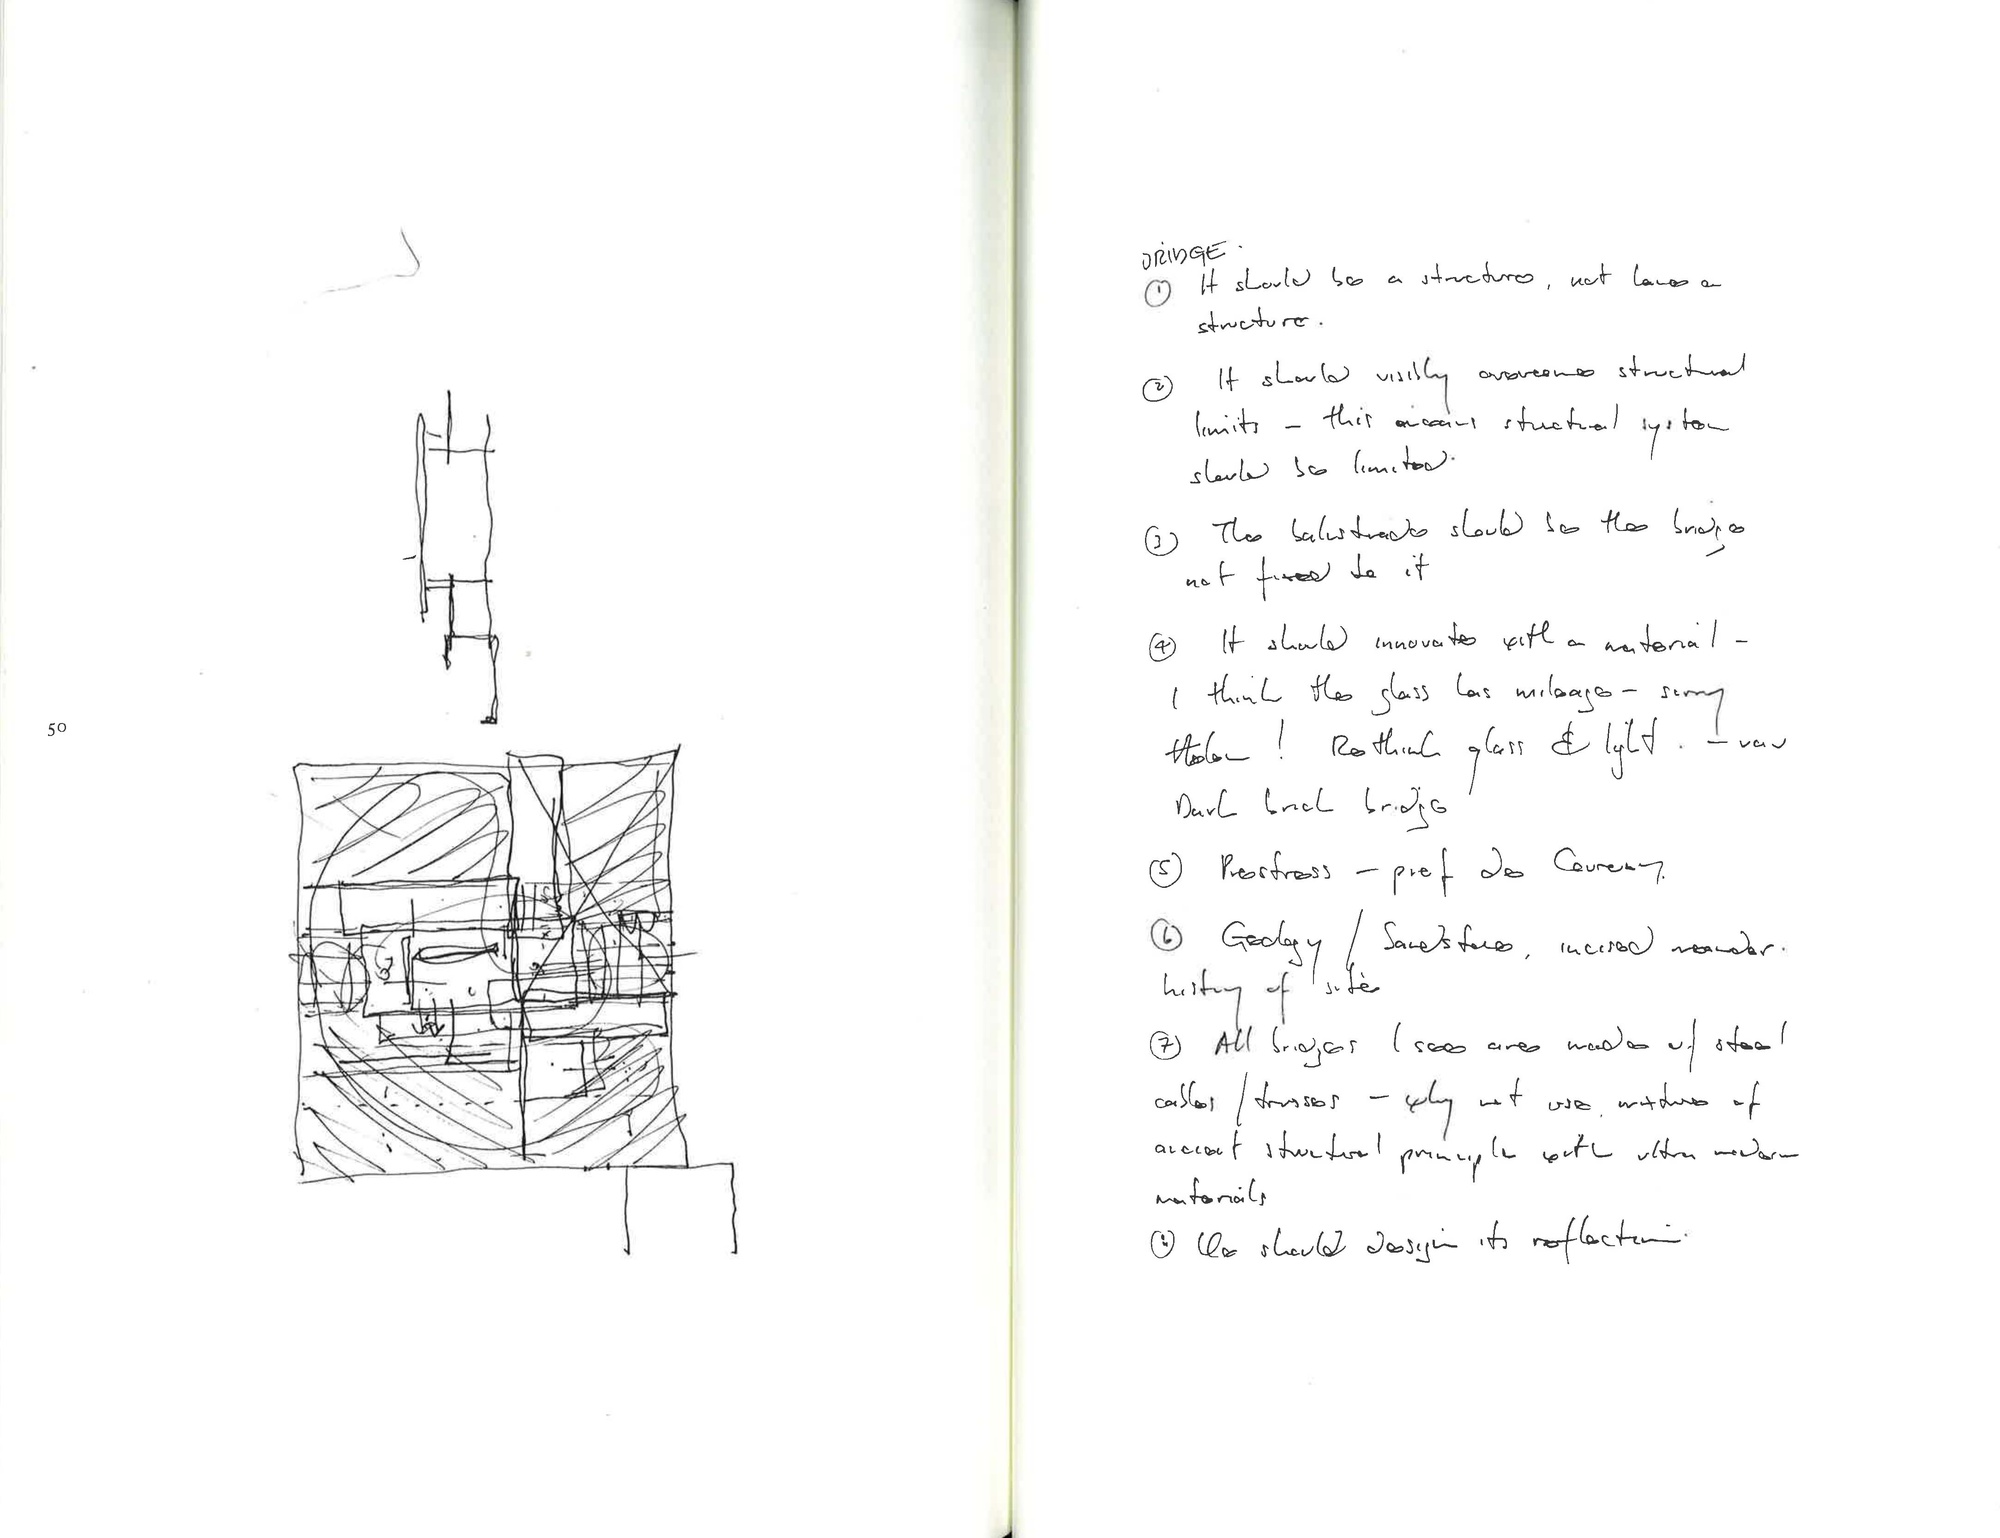 50
BRIDGE.
① It should be a structure, not have a
structure.
② It should visibly overcome structural
limits – this means structural system
should be limited.
③ The balustrade should be the bridge
not fixed to it
④ It should innovate with a material –
I think the glass has mileage – sorry
! Rethink glass & light. –
Dark brick bridge
⑤ Prestress – pref de
⑥ Geology / Sandstone, incised meander.
history of site
⑦ All bridges I see are made of steel
cables / trusses – why not use mixture of
ancient structural principle with ultra modern
materials
We should design its reflection.